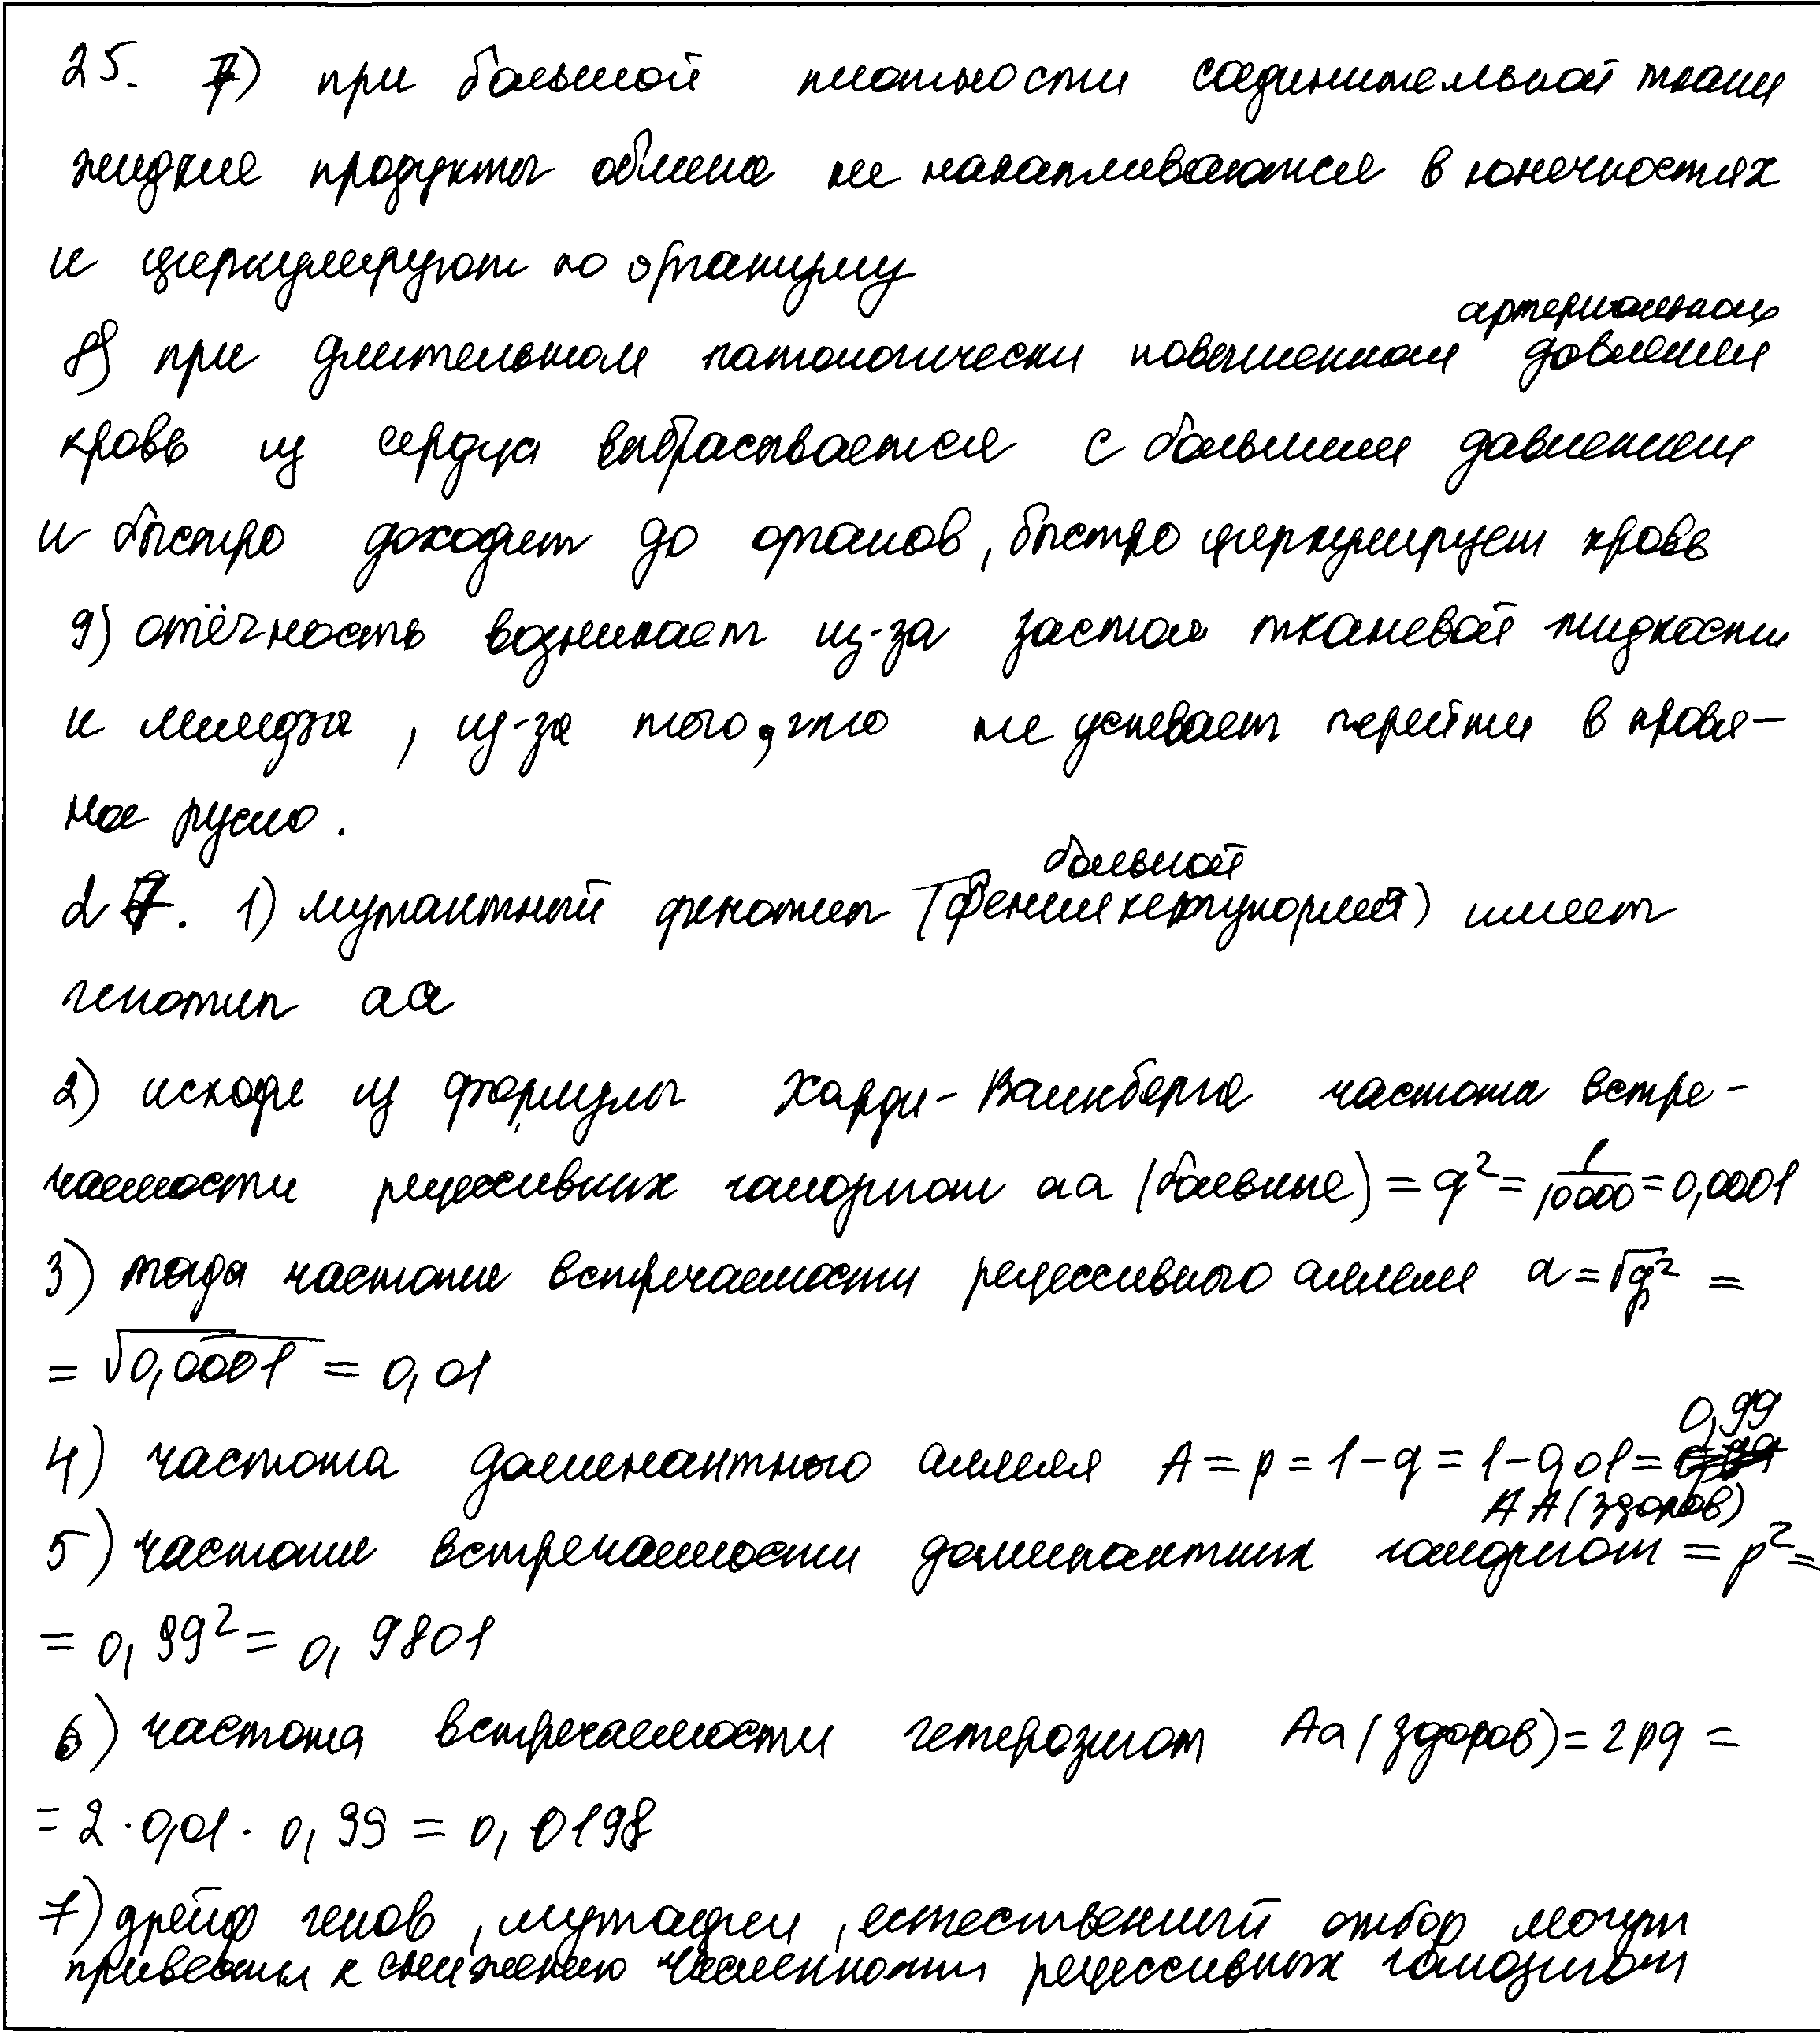 25. 7) при большой плотности соединительной ткани
жидкие продукты обмена не накапливаются в конечностях
и циркулируют по организму
артериальном
8) при длительном патологически повышенном давлении
кровь из сердца выбрасывается с большим давлением
и быстро доходит до органов, быстро циркулирует кровь
9) отёчность возникает из-за застоя тканевой жидкости
и лимфы, из-за того, что не успевает перейти в кровя-
ное русло.
больной
27. 1) мутантный фенотип (фенилкетонурией) имеет
генотип aa
2) исходя из формулы Харди-Вайнберга частота встре-
чаемости рецессивных гомозигот aa (больные) = q² = 1/10000 = 0,0001
3) тогда частота встречаемости рецессивного аллеля a = √q² =
= √0,0001 = 0,01
0,99
4) частота доминантного аллеля A = p = 1 - q = 1 - 0,01 =
AA (здоров)
5) частота встречаемости доминантных гомозигот = p² =
= 0,99² = 0,9801
6) частота встречаемости гетерозигот Aa (здоров) = 2pq =
= 2 · 0,01 · 0,99 = 0,0198
7) дрейф генов, мутации, естественный отбор могут
привести к снижению численности рецессивных гомозигот